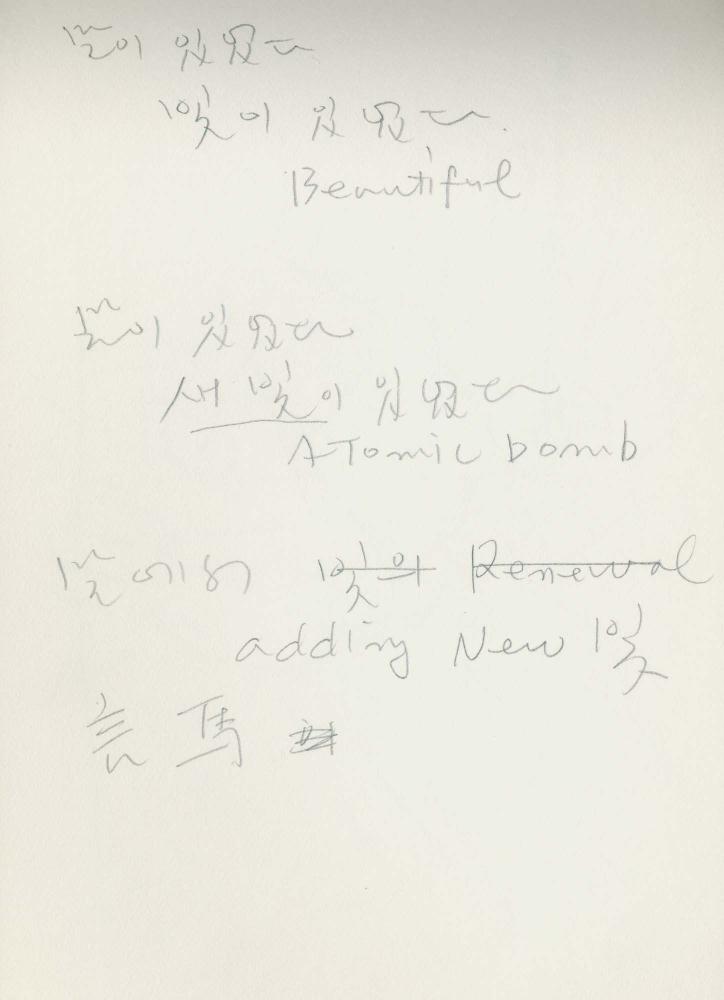 말이 있었다
빛이 있었다.
Beautiful
말이 있었다
새 빛이 있었다
ATomic bomb
말에서 빛의 Renewal
adding New 빛
言 馬